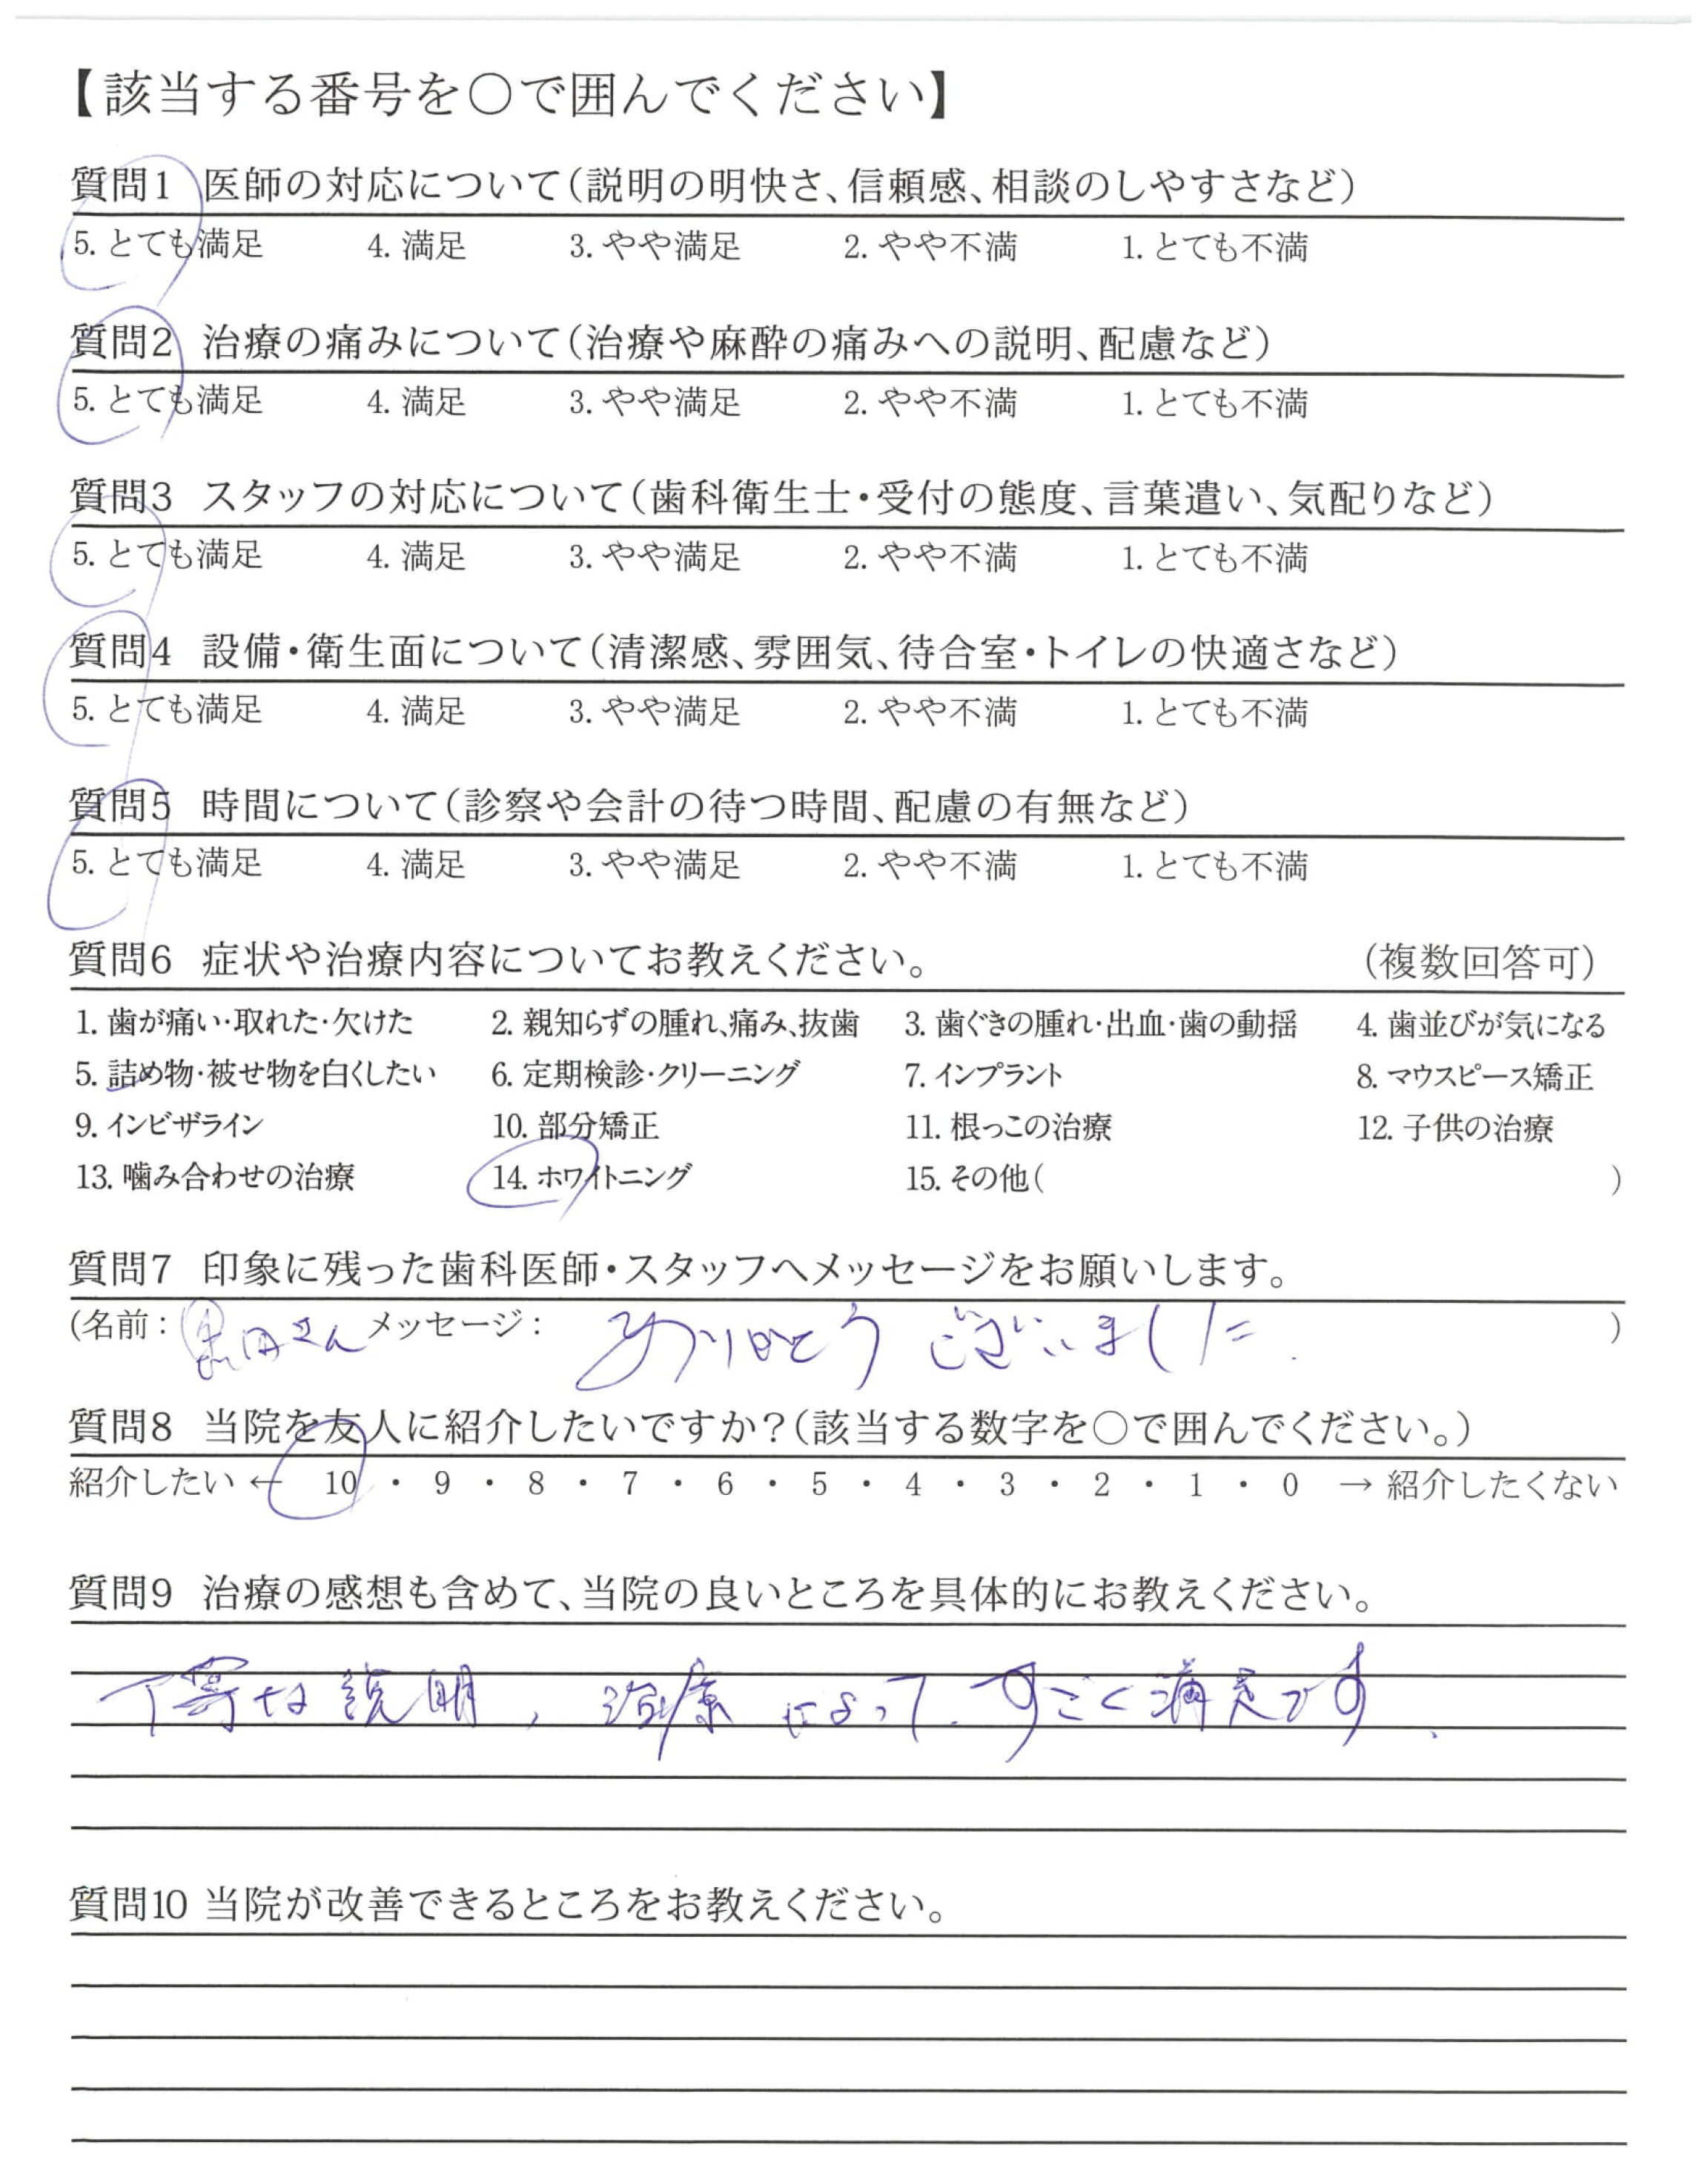 【該当する番号を○で囲んでください】
質問1 医師の対応について（説明の明快さ、信頼感、相談のしやすさなど）
5. とても満足 4. 満足 3. やや満足 2. やや不満 1. とても不満
質問2 治療の痛みについて（治療や麻酔の痛みへの説明、配慮など）
5. とても満足 4. 満足 3. やや満足 2. やや不満 1. とても不満
質問3 スタッフの対応について（歯科衛生士・受付の態度、言葉遣い、気配りなど）
5. とても満足 4. 満足 3. やや満足 2. やや不満 1. とても不満
質問4 設備・衛生面について（清潔感、雰囲気、待合室・トイレの快適さなど）
5. とても満足 4. 満足 3. やや満足 2. やや不満 1. とても不満
質問5 時間について（診察や会計の待つ時間、配慮の有無など）
5. とても満足 4. 満足 3. やや満足 2. やや不満 1. とても不満
質問6 症状や治療内容についてお教えください。 （複数回答可）
1. 歯が痛い・取れた・欠けた 2. 親知らずの腫れ、痛み、抜歯 3. 歯ぐきの腫れ・出血・歯の動揺 4. 歯並びが気になる
5. 詰め物・被せ物を白くしたい 6. 定期検診・クリーニング 7. インプラント 8. マウスピース矯正
9. インビザライン 10. 部分矯正 11. 根っこの治療 12. 子供の治療
13. 噛み合わせの治療 14. ホワイトニング 15. その他（ ）
質問7 印象に残った歯科医師・スタッフへメッセージをお願いします。
(名前： さん メッセージ： ありがとうございました. )
質問8 当院を友人に紹介したいですか？（該当する数字を○で囲んでください。）
紹介したい ← 10 ・ 9 ・ 8 ・ 7 ・ 6 ・ 5 ・ 4 ・ 3 ・ 2 ・ 1 ・ 0 → 紹介したくない
質問9 治療の感想も含めて、当院の良いところを具体的にお教えください。
丁寧な説明、治療によって、すごく満足です、
質問10 当院が改善できるところをお教えください。